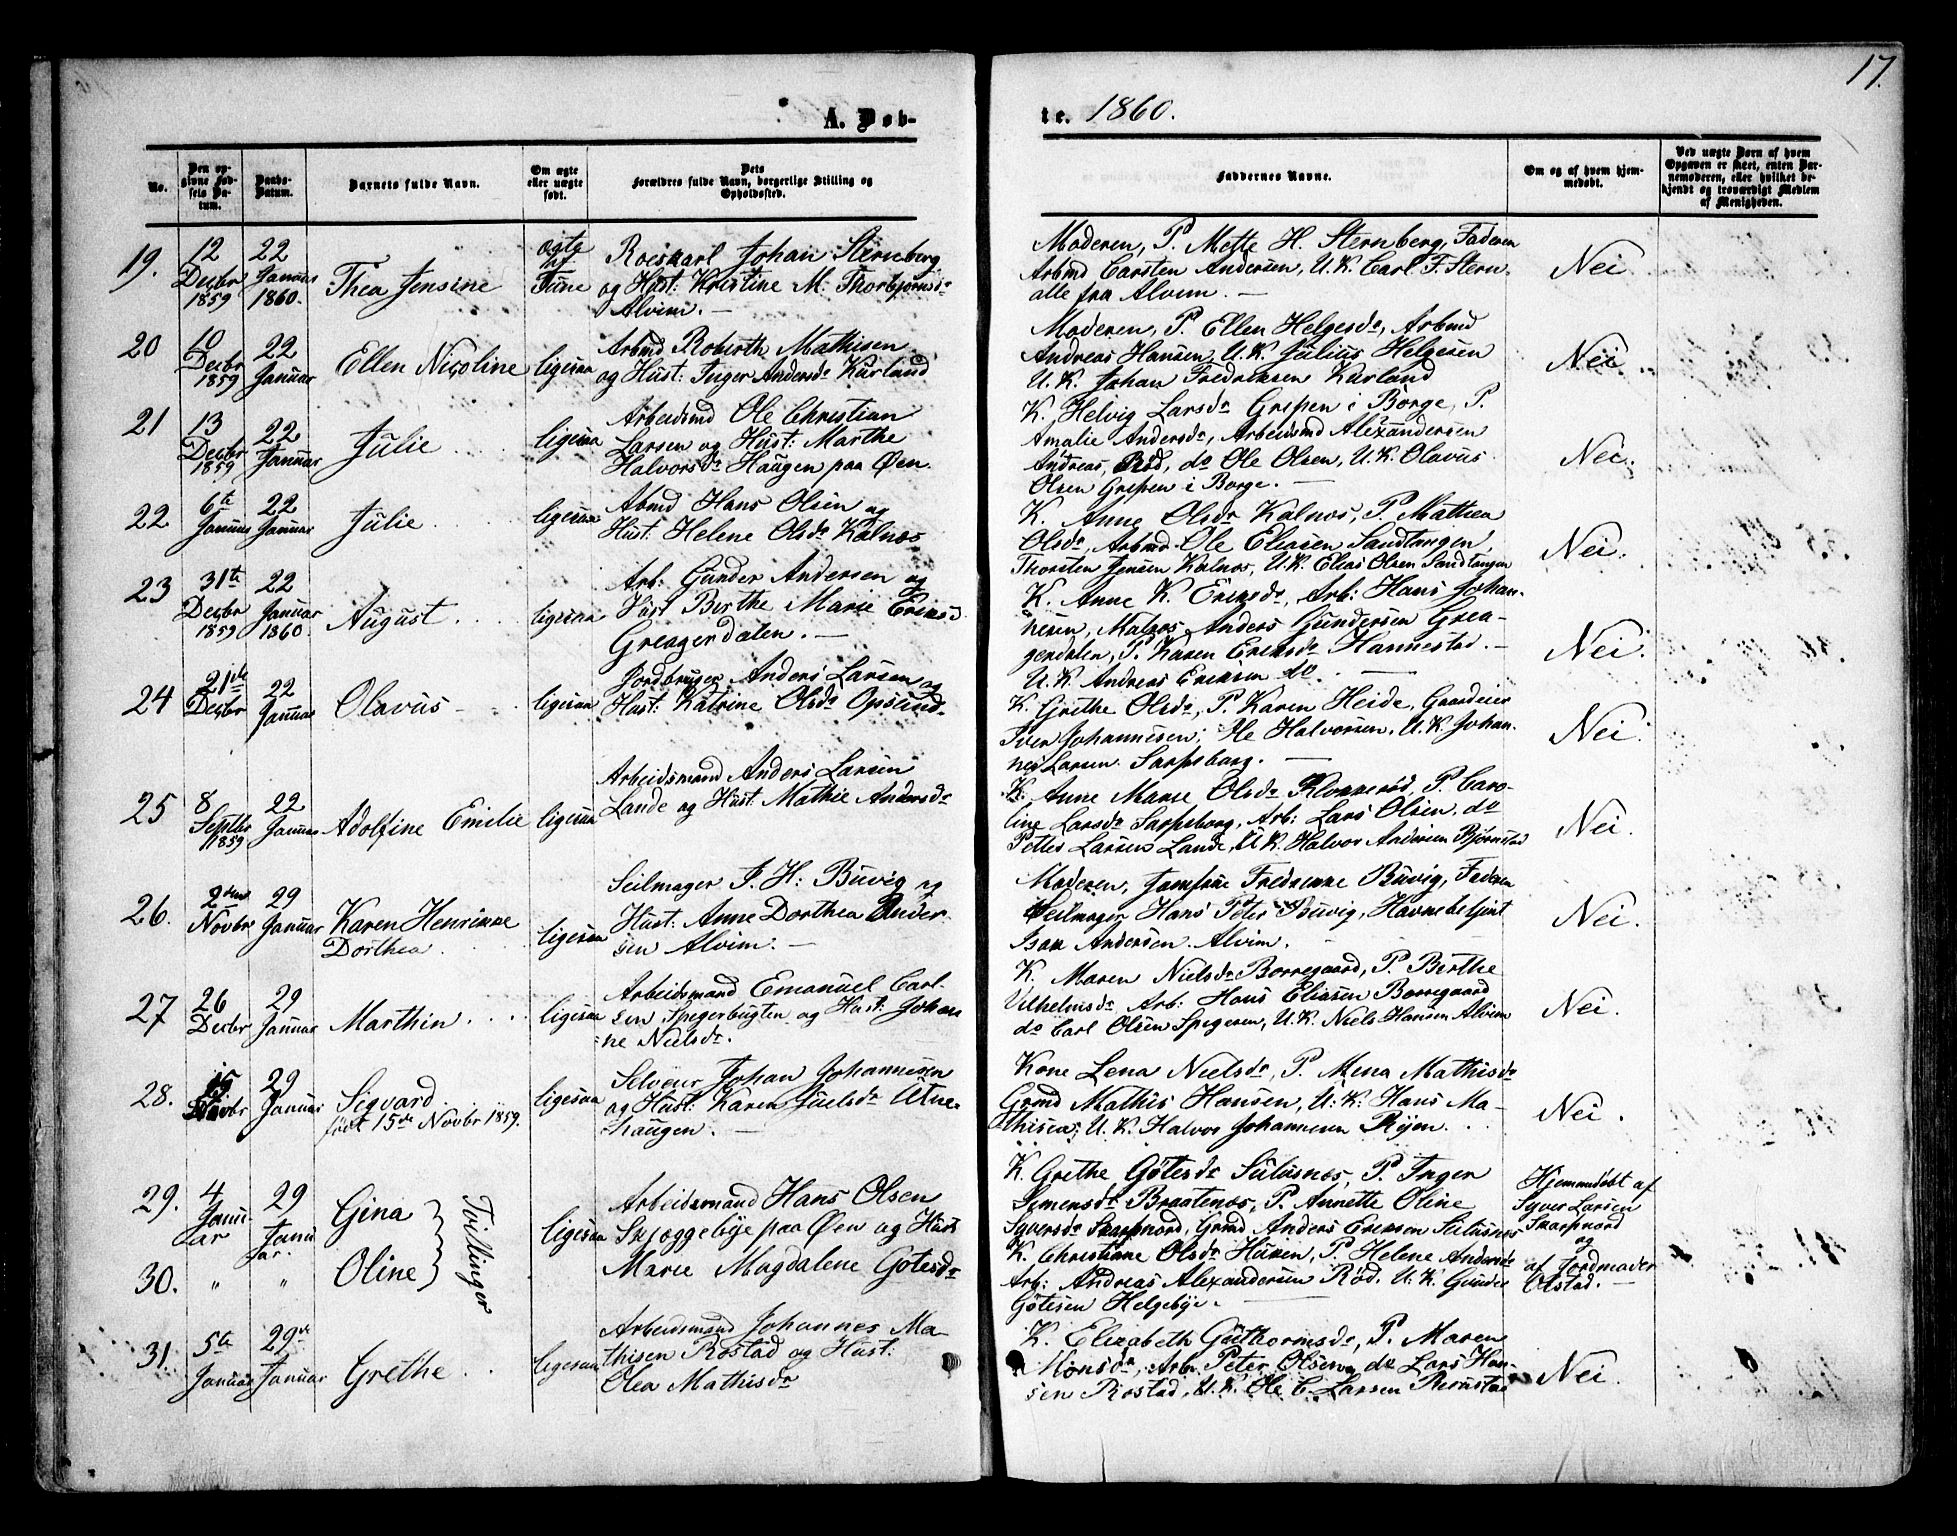 17.
A. Døb-
te. 1860.
No.
Den opgivne Fødsels Datum.
Daabs-Datum.
Barnets fulde Navn.
Om ægte eller uægte født.
Dets Forældres fulde Navn, borgerlige Stilling og Opholdssted.
Faddernes Navne.
Om og af hvem hjemmedøbt.
Ved uægte Børn af hvem Opgaven er skeet, enten Barnemoderen, eller hvilket bekjendt og troværdigt Medlem af Menigheden.
19.
12 Decbr 1859
22 Januar 1860.
Thea Jensine
ægte af Tune
Johan Sternberg
og Hust: Kristine M. Thorbjørnsdr
Alvim. —
Moderen, P. Mette H. Sternberg, Faderen
Arbmd Carsten Andersen, U.K. Carl F. Stern.
alle fra Alvim. —
Nei
20
10 Decbr 1859
22 Januar
Ellen Nicoline
ligesaa
Arbmd Roberth Mathisen
og Hust: Inger Andersdr Karland
Moderen, P. Ellen Helgesdr, Arbmd
Andreas Hansen, U.K. Julius Helgesen
U.K. Johan Fredriksen Karland
Nei
21
13 Decbr 1859
22 Januar
Julie
ligesaa
Arbeidsmd Ole Christian
Larsen og Hust: Marthe
Halvorsdr Haugen paa Øen.
K. Helvig Larsdr Grepen i Borge, P.
Amalie Andersdr, Arbeidsmd Alexandersen
Andreas, Rød, do Ole Olsen, U.K. Olavus
Olsen Grepen i Borge. —
Nei.
22
6te Januar
22 Januar
Julie
ligesaa
Abmd Hans Olsen og
Hust. Helene Olsdr Kalnæs
K. Anne Olsdr Kalnæs, P. Mathea
Olsdr, Arbmd Ole Eliasen Sandtangen,
Thorsten Jensen Kalnæs, U.K. Elias Olsen Sandtangen
Nei.
23
31te Decbr 1859
22 Januar 1860.
August
ligesaa
Arb: Gunder Andersen og
Hust Birthe Marie Eriksd
Greagerdalen. —
K. Anne K. Eriksdr, Arb: Hans Johan-
nesen, Anders Gundersen Grea-
gerdalen, P. Karen Eriksdr Hannestad. —
U.K. Andreas Eriksen do. —
Nei.
24
21de Decbr
22 Januar
Olavus
ligesaa
Jordbruger Anders Larsen og
Hust: Katrine Olsdr Opsund.
K. Grethe Olsdr, P. Karen Heide, Gaardeier
Iver Johannesen, Ole Halvorsen, U.K. Johan-
nes Larsen Sarpsborg. —
Nei.
25
8 Septbr 1859
22 Januar
Adolfine Emilie
ligesaa
Arbeidsmand Anders Larsen
Lande og Hust: Mathie Andersdr
K. Anne Marie Olsdr Klokkerød, P. Caro-
line Larsdr Sarpsborg, Arb: Lars Olsen, do
Petter Larsen Lande, U.K. Halvor Andersen Bjørnstad
Nei.
26.
2den Novbr
29 Januar
Karen Henrikke
Dorthea
ligesaa
Seilmager J. H: Buvig og
Hust: Anne Dorthea Ander-
sen Alvim. —
Moderen, Fredrikke Buvig, Faderen
Seilmager Hans Peter Buvig, Havnebetjent
Isak Andersen Alvim.
Nei.
27
26 Decbr
29 Januar
Marthin
ligesaa
Arbeidsmand Emanuel Carl-
sen Spigerbugten og Hust: Johan
ne Nielsdr.
K. Maren Nielsdr Borregaard, P. Birthe
Vilhelmsdr Arb: Hans Eliasen Borregaard
do Carl Olsen Spigeren, U.K. Niels Hansen Alvim
Nei.
28.
15 Novbr
29 Januar
Sigvard.
født 15de Novbr 1859.
ligesaa
Selveier Johan Johannesen
og Hust: Karen Juelsdr Utne-
haugen. —
Kone Lena Nielsdr, P. Mina Mathisdr
Grmd Mathis Hansen, U.K: Hans Ma-
thisen, U.K. Halvor Johannesen Ryen.
Nei.
29.
4 Januar
29 Januar
Gina
Tvillinger
ligesaa
Arbeidsmand Hans Olsen
Skjeggebye paa Øen og Hust
Marie Magdalene Gotesdr
30.
" "
Oline
K Grethe Götesdr P. Inger
Simensdr Braatenæs, P. Annette Oline
Syversdr Skarpnord, Grmd Anders Eriksen
K. Christiane Olsdr P. Helene Andersdr
Arb: Andreas Alexandersen Rød. U.K. Gunder
Götesen Helgebye.
Hjemmedøbt af
Syver Larsen
Skarpnord
og
af Jordmoder
Olstad. —
31.
5te Januar
29de Januar
Grethe
ligesaa
Arbeidsmand Johannes Ma-
thisen Rostad og Hust:
Olea Mathisdr
K. Elizabeth Guthormsdr, P. Maren
Monsdr, Arb. Peter Olsen, do Lars Han-
sen Rostad, U.K. Ole C. Larsen
Nei.